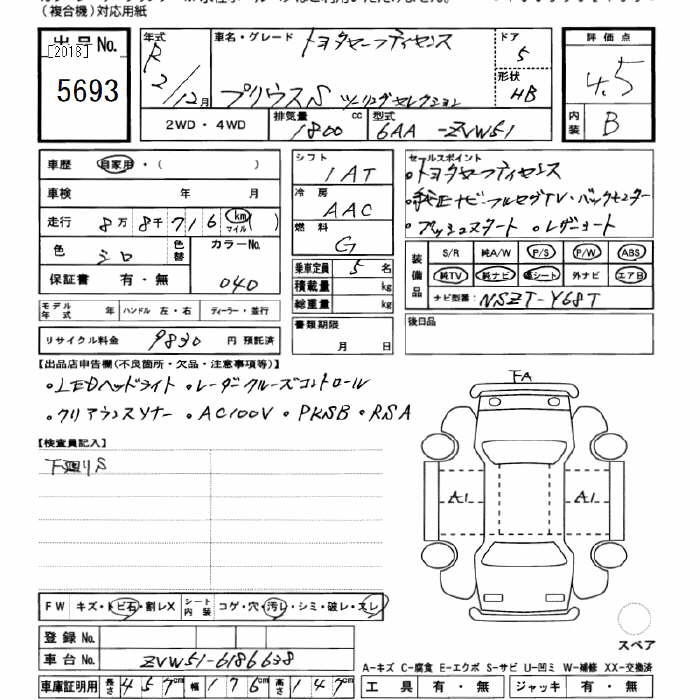 （複合機）対応用紙
出品No. [2018] 5693
年式 R 2/12月
車名・グレード トヨタサーティフィセンス
プリウスS ツーリングセレクション
ドア 5
形状 HB
評価点 4.5
内装 B
2WD・4WD 排気量 1800 cc 型式 6AA-ZVW51
車歴 自家用・（ ）
車検 年 月
走行 8万8千716 km マイル ( )
色 シロ 色替 カラーNo. 040
保証書 有・無
モデル年式 年 ハンドル 左・右 ディーラー・並行
リサイクル料金 9830 円 預託済
シフト IAT
冷房 AAC
燃料 G
乗車定員 5 名
積載量 kg
総重量 kg
書類期限 月 日
セールスポイント
・純正ナビ・フルセグTV・バックモニター
・プッシュスタート ・レザーシート
装備品 S/R 純A/W P/S P/W ABS
純TV 純ナビ 革シート 外ナビ エアB
ナビ型番 NSZT-Y68T
後日品
【出品店申告欄（不良箇所・欠品・注意事項等）】
・LEDヘッドライト ・レーダクルーズコントロール
・クリアランスソナー ・AC100V ・PKSB ・RSA
【検査員記入】
下廻りS
FA
A1 A1
FW キズ・トビ石・割レX シート内装 コゲ・穴・汚レ・シミ・破レ・スレ
登録No.
車台No. ZVW51-6186638
車庫証明用 長さ 457cm 幅 176cm 高さ 147cm
スペア
A-キズ C-腐食 E-エクボ S-サビ U-凹ミ W-補修 XX-交換済
工具 有・無 ジャッキ 有・無